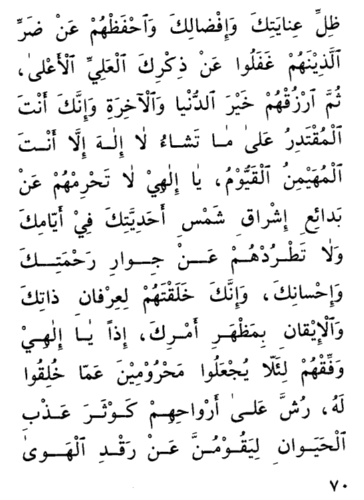 ظِلِّ عِنايَتِكَ وَإِفْضالِكَ وَٱحْفَظْهُمْ عَنْ ضَرِّ
ٱلَّذِيْنَهُمْ غَفَلُوا عَنْ ذِكْرِكَ ٱلْعَلِيِّ ٱلْأَعْلىٰ،
ثُمَّ ٱرْزُقْهُمْ خَيْرَ ٱلدُّنْيا وَٱلْآخِرَةِ وَإِنَّكَ أَنْتَ
ٱلْمُقْتَدِرُ عَلىٰ ما تَشاءُ لا إِلٰهَ إِلَّا أَنْتَ
ٱلْمُهَيْمِنُ ٱلْقَيُّوْمُ، يا إِلٰهِيْ لا تَحْرِمْهُمْ عَنْ
بَدائِعِ إِشْراقِ شَمْسِ أَحَدِيَّتِكَ فِيْ أَيَّامِكَ
وَلا تَطْرُدْهُمْ عَنْ جِوارِ رَحْمَتِكَ
وَإِحْسانِكَ، وَإِنَّكَ خَلَقْتَهُمْ لِعِرْفانِ ذاتِكَ
وَٱلْإِيْقانِ بِمَظْهَرِ أَمْرِكَ، إِذاً يا إِلٰهِيْ
وَفِّقْهُمْ لِئَلّا يُجْعَلُوا مَحْرُوْمِيْنَ عَمّا خُلِقُوا
لَهُ، رُشَّ عَلىٰ أَرْواحِهِمْ كَوْثَرَ عَذْبِ
ٱلْحَيَوانِ لِيَقُوْمُنَّ عَنْ رَقْدِ ٱلْهَوىٰ
٧٠